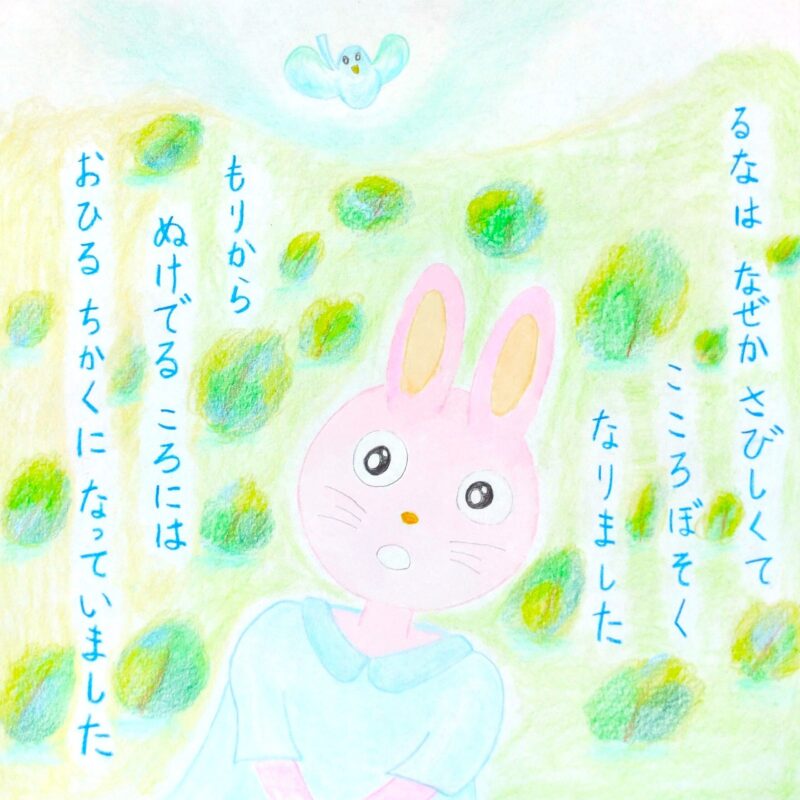 るなは なぜか さびしくて
こころぼそく
なりました
もりから
ぬけでる ころには
おひる ちかくに なっていました